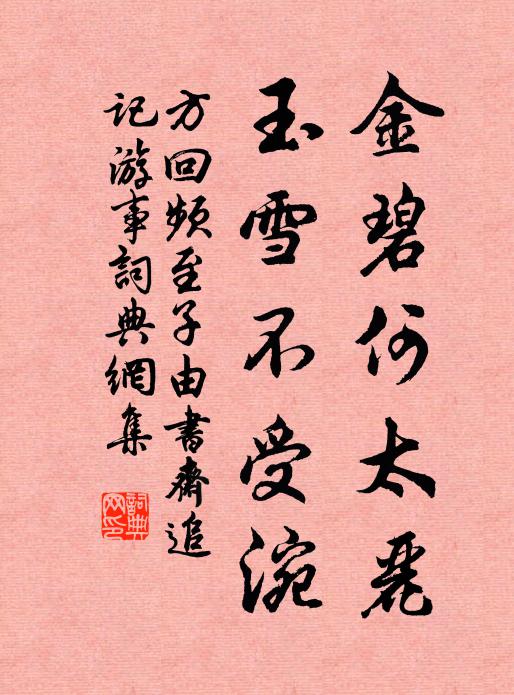 金碧何太麗
玉雪不受涴
方回頻至子由書齋追
記游事詞典網集
詞典網印